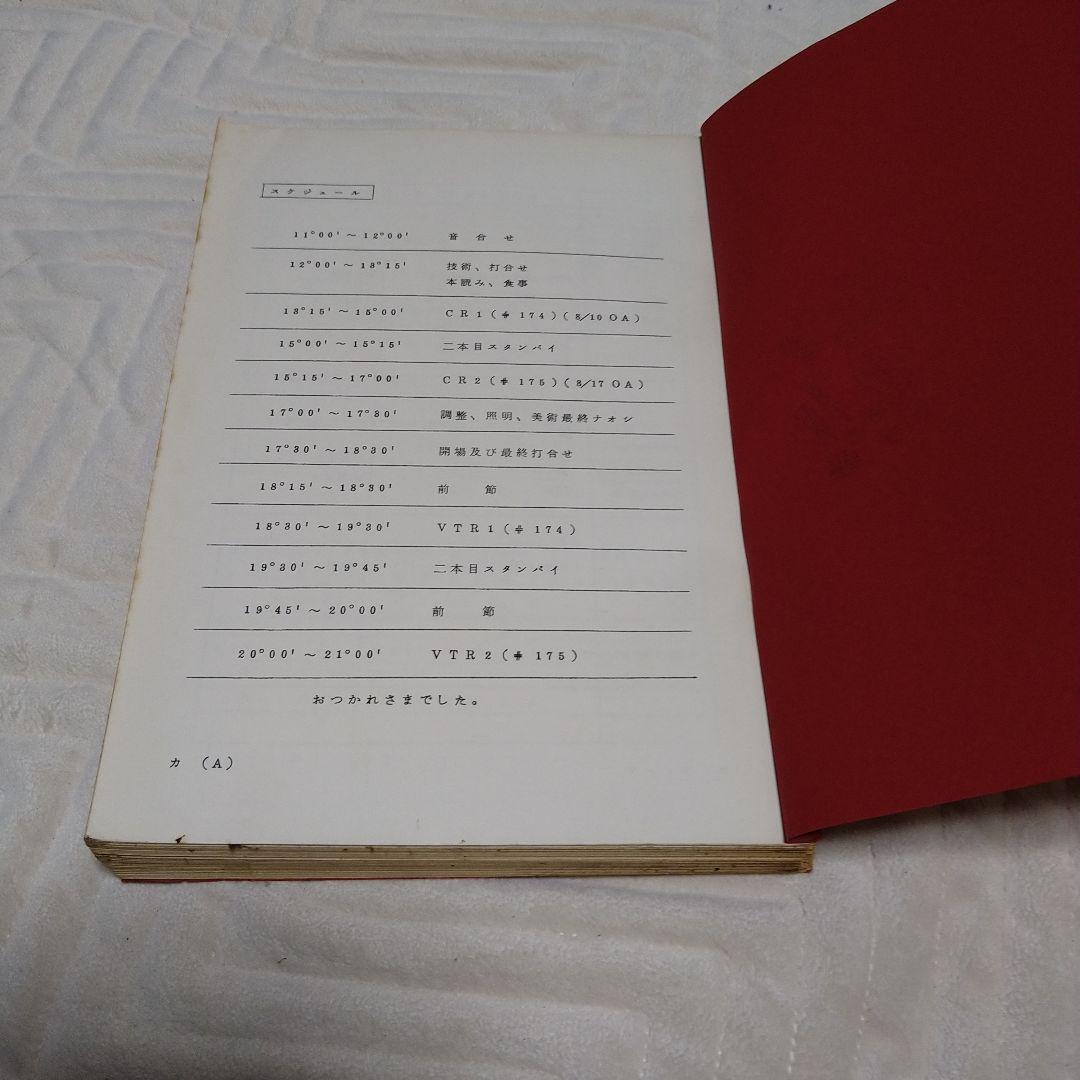 スケジュール
11°00'～12°00' 音合せ
12°00'～13°15' 技術、打合せ
本読み、食事
13°15'～15°00' CR1(# 174)(8/10 OA)
15°00'～15°15' 二本目スタンバイ
15°15'～17°00' CR2(# 175)(8/17 OA)
17°00'～17°30' 調整、照明、美術最終ナオシ
17°30'～18°30' 開場及び最終打合せ
18°15'～18°30' 前節
18°30'～19°30' VTR1(# 174)
19°30'～19°45' 二本目スタンバイ
19°45'～20°00' 前節
20°00'～21°00' VTR2(# 175)
おつかれさまでした。
カ (A)